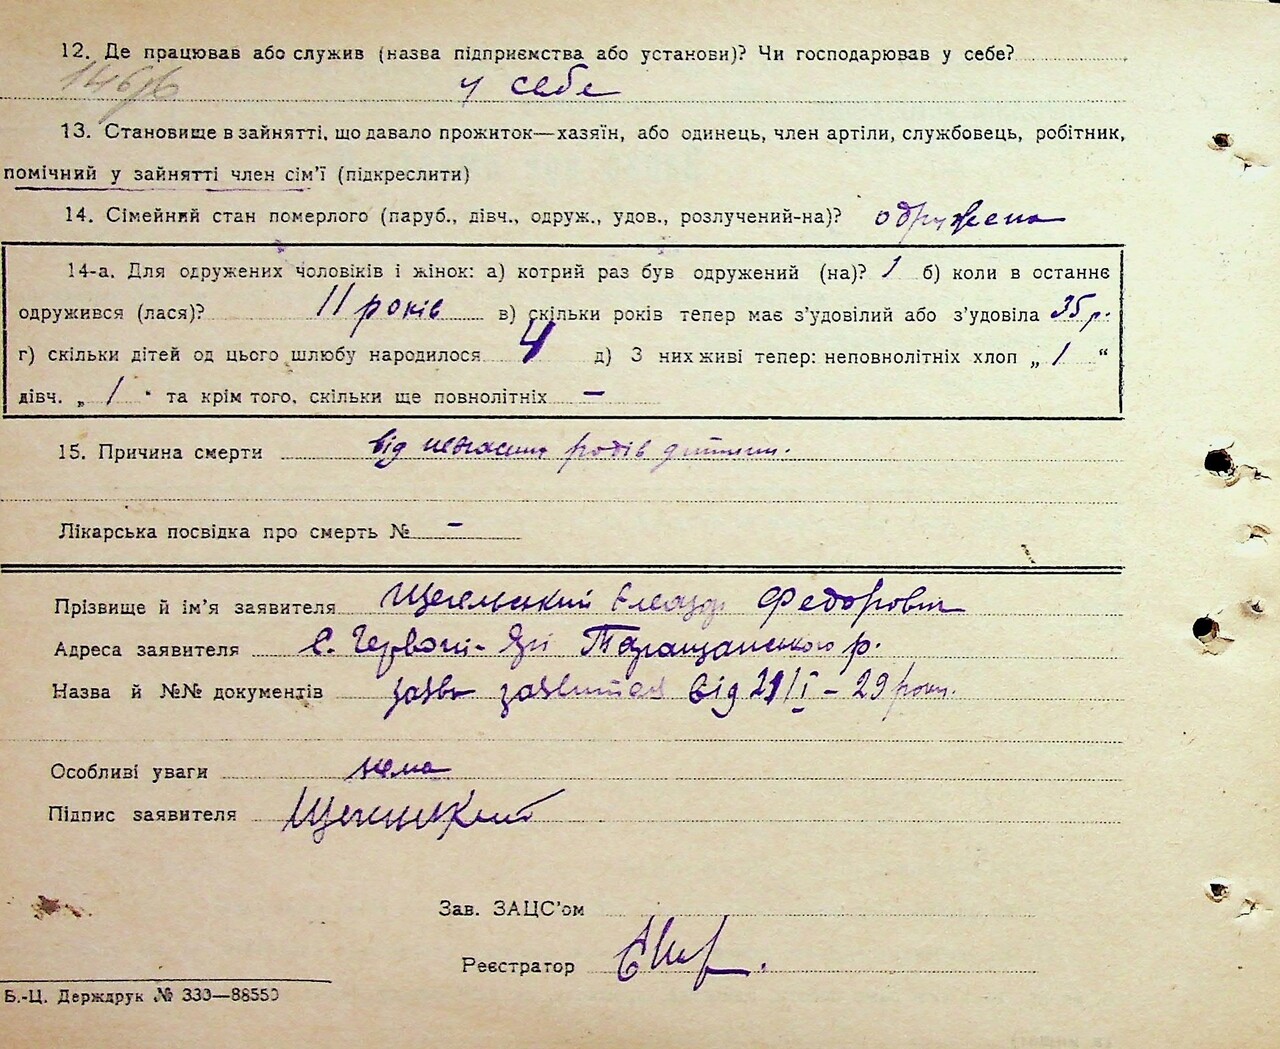 12. Де працював або служив (назва підприємства або установи)? Чи господарював у себе?
у себе
13. Становище в зайнятті, що давало прожиток—хазяїн, або одинець, член артіли, службовець, робітник,
помічний у зайнятті член сім'ї (підкреслити)
14. Сімейний стан померлого (паруб., дівч., одруж., удов., розлучений-на)? одружена
14-а. Для одружених чоловіків і жінок: а) котрий раз був одружений (на)? 1 б) коли в останнє
одружився (лася)? 11 років в) скільки років тепер має з'удовілий або з'удовіла 35 р.
г) скільки дітей од цього шлюбу народилося 4 д) З них живі тепер: неповнолітніх хлоп „ 1 “
дівч. „ 1 “ та крім того, скільки ще повнолітніх —
15. Причина смерти від родів дитини.
Лікарська посвідка про смерть № —
Прізвище й ім'я заявителя Федорович
Адреса заявителя с. Червоні-Яри Таращанського р.
Назва й №№ документів заява заявителя від 21/I – 29 року.
Особливі уваги нема
Підпис заявителя
Зав. ЗАЦС'ом
Реєстратор
Б.-Ц. Держдрук № 333—88550